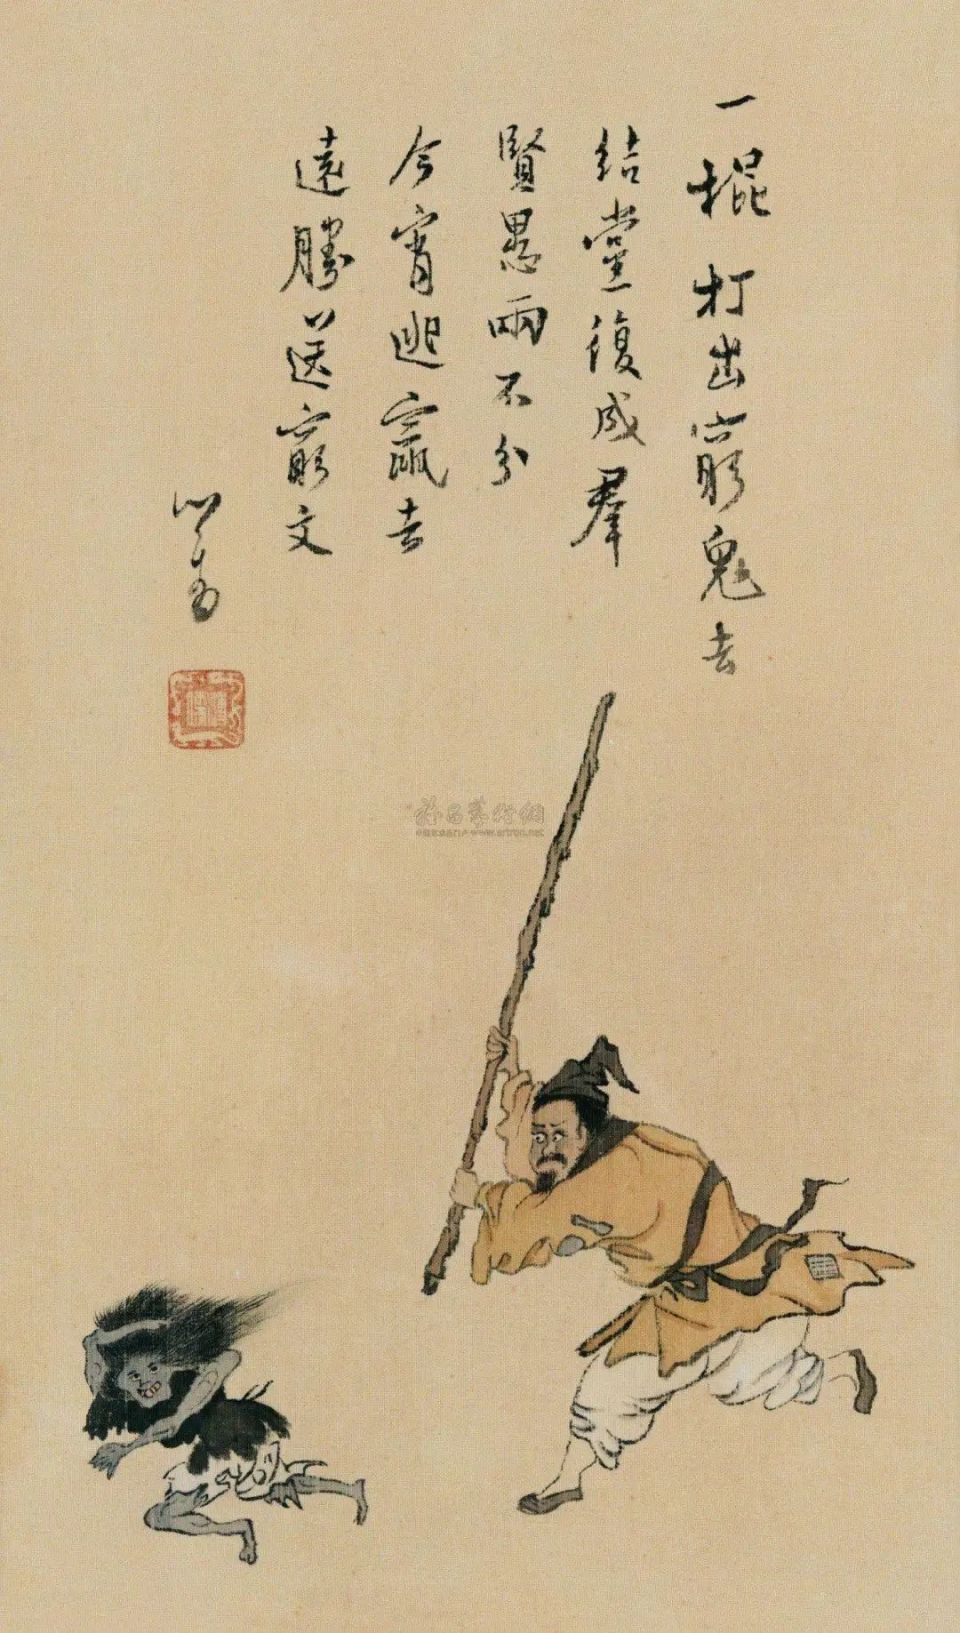 一棍打出窮鬼去
結黨復成羣
賢愚兩不分
今宵逃竄去
遠勝送窮文
心畬
雅昌藝術網
www.artron.net